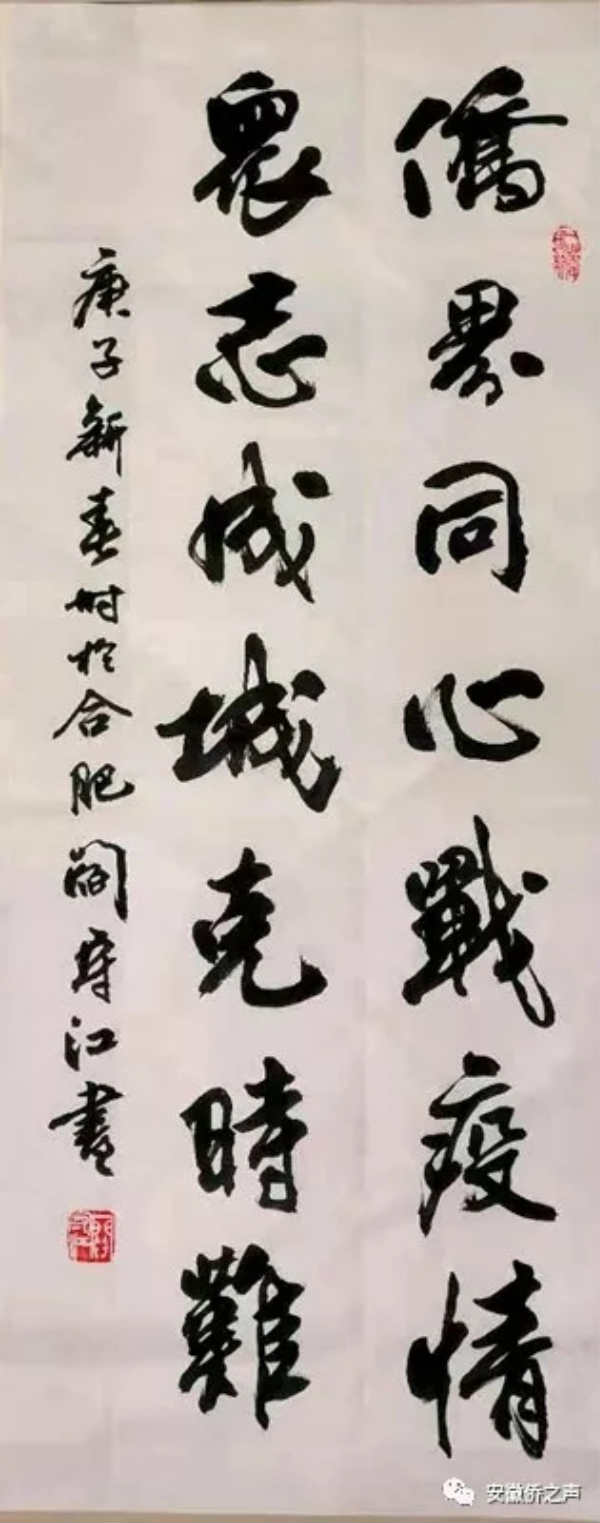 僑界同心戰疫情
衆志成城克時難
庚子新春时於合肥阚守江書
安徽侨之声